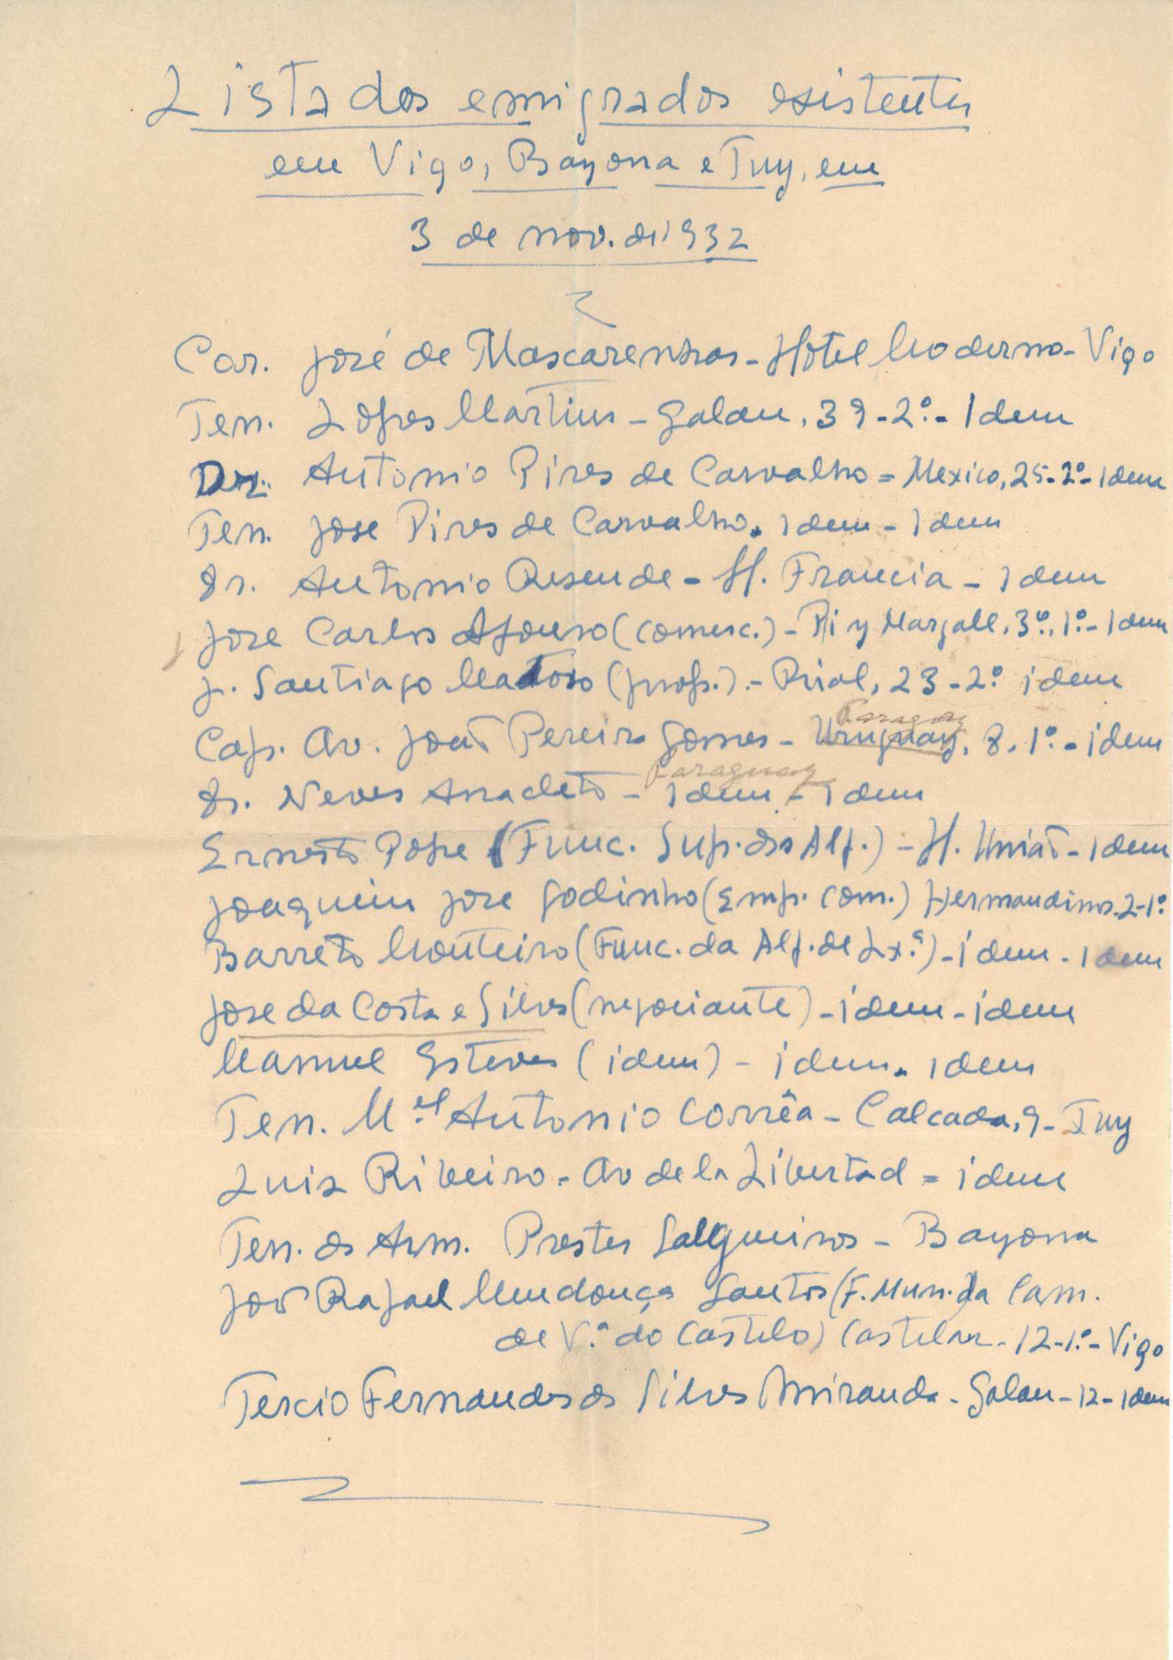 Lista dos emigrados existentes
em Vigo, Bayona e Tuy, em
3 de nov. de 1932
Cor. José de Mascarenhas - Hotel Moderno - Vigo
Ten. Lopes Martins - Galan, 39-2º - Idem
Dr. Antonio Pires de Carvalho = Mexico, 25-2º - idem
Ten. Jose Pires de Carvalho - idem - idem
Dr. Antonio Resende - H. Francia - idem
Jose Carlos Afonso (comerc.) - Pi y Margall, 3º, 1º - Idem
J. Santiago Matoso (prof.) - Pirol, 23-2º idem
Paraguay
Cap. Av. João Pereira Gomes - Uruguay, 8, 1º - idem
Paraguay
Dr. Neves Anacleto - idem - idem
Ernesto Pope (Func. Sup. das Alf.) - H. União - idem
Joaquim Jose Godinho (Emp. Com.) Hernandinos, 2-1º
Barreto Monteiro (Func. da Alf. de Lxª) - idem - idem
Jose da Costa e Silva (negociante) - idem - idem
Manuel Esteves (idem) - idem - idem
Ten. Mel Antonio Corrêa - Calcada, 9 - Tuy
Luiz Ribeiro - Av de la Libertad = idem
Ten. da Arm. Prestes Salgueiros - Bayona
João Rafael Mendonça Santos (F. Mun. da Cam.
de Vª do Castelo) Castelar - 12-1º - Vigo
Tercio Fernandes da Silva Miranda - Galan - 12 - idem